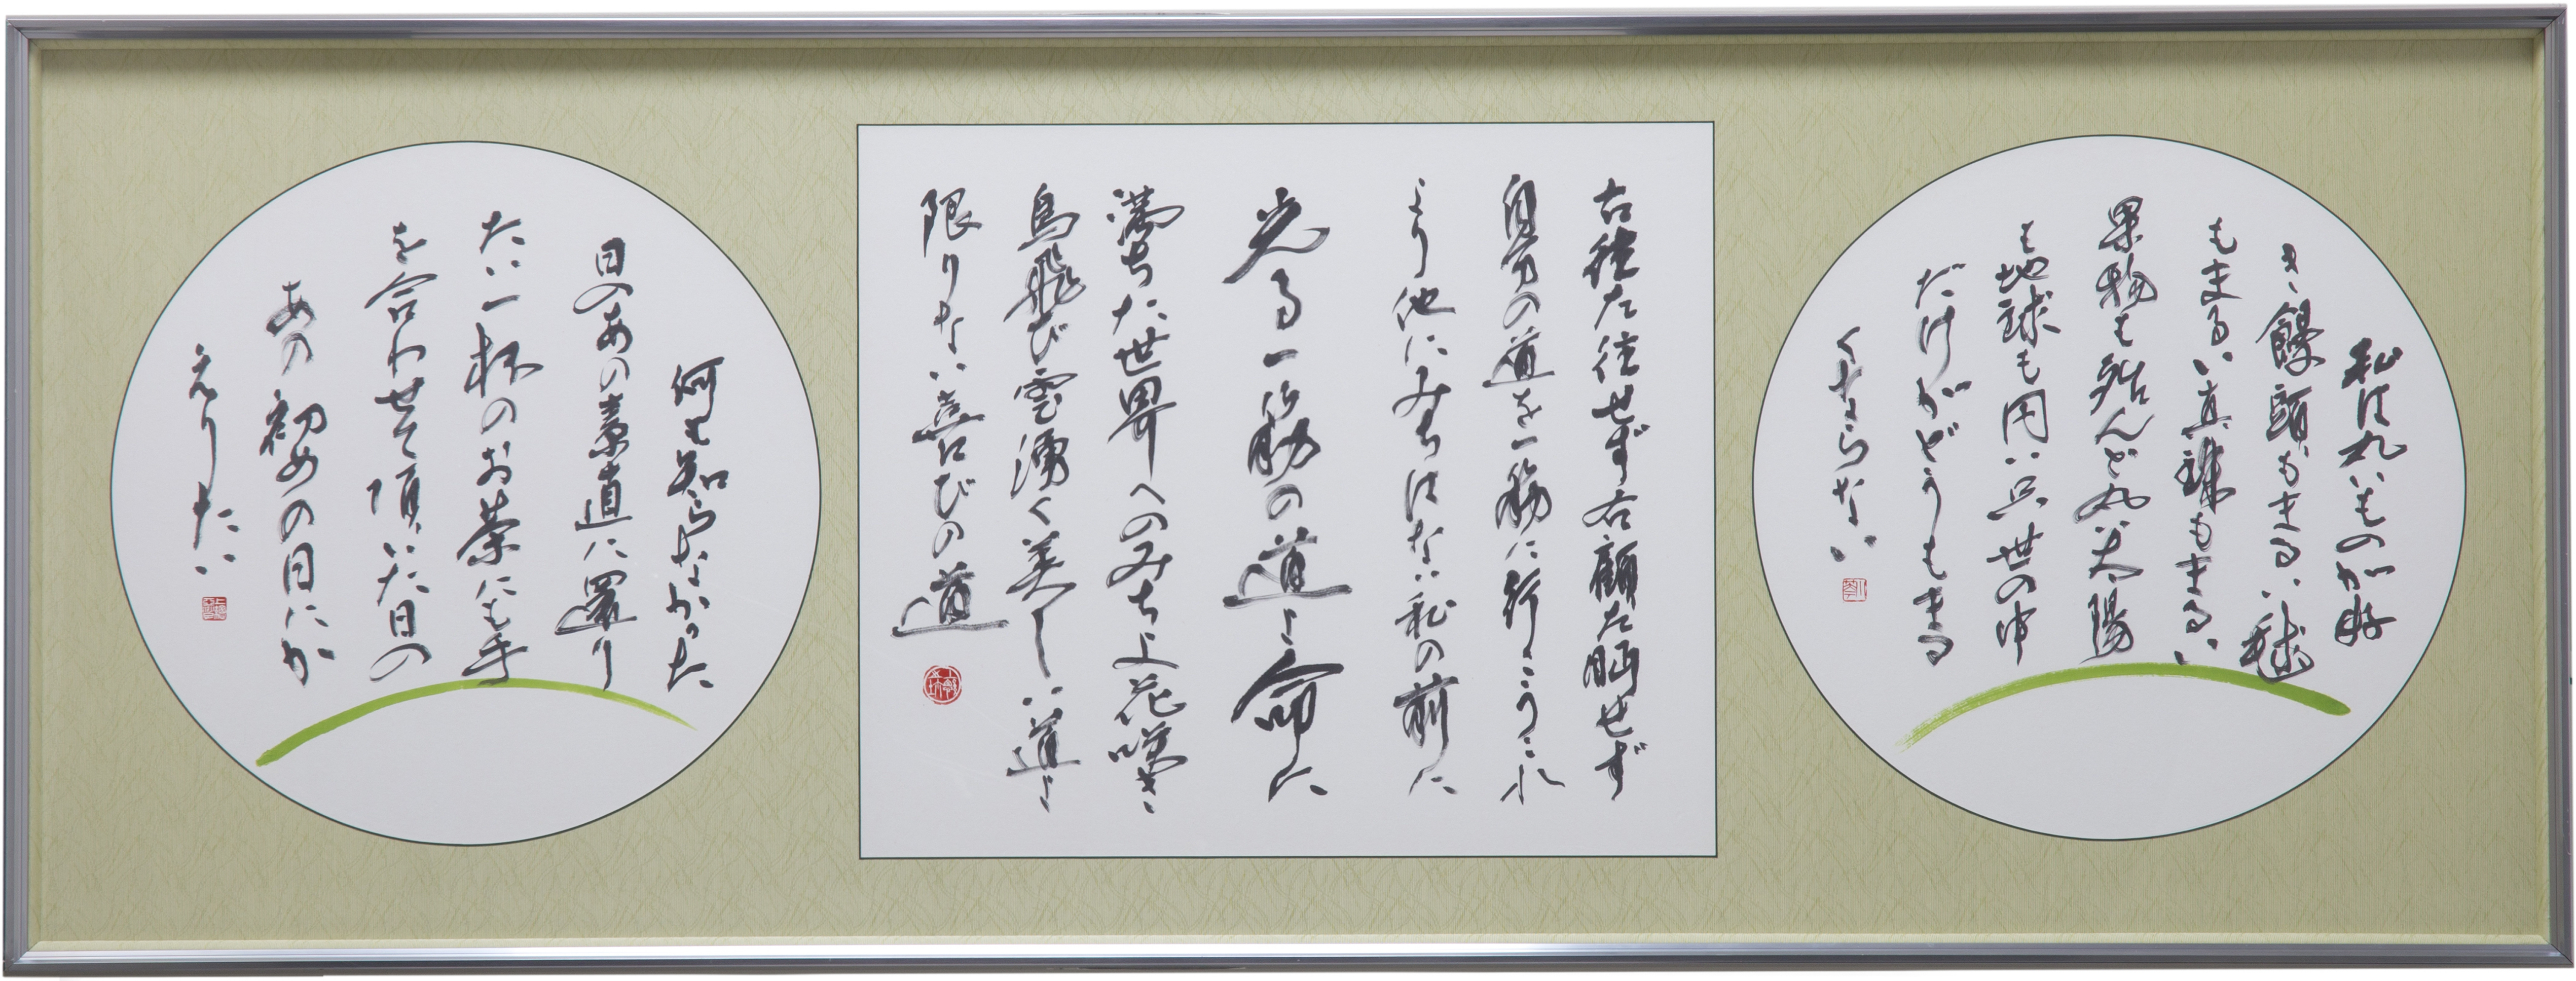 私は丸いものが好
き、饅頭もまるい、毬
もまるい真珠もまるい
果物も殆んど丸太陽
も地球も円い只世の中
だけがどうもまる
くならない
右往左往せず右顧左眄せず
自分の道を一筋に行こうこれ
より他にみちはない私の前に
光る一筋の道よ命に
満ちた世界へのみちよ花咲き
鳥飛び雲湧く美しい道よ
限りない喜びの道
何も知らなかった
日のあの素直に還り
たい一杯のお茶にも手
を合わせて頂いた日の
あの初めの日にか
えりたい